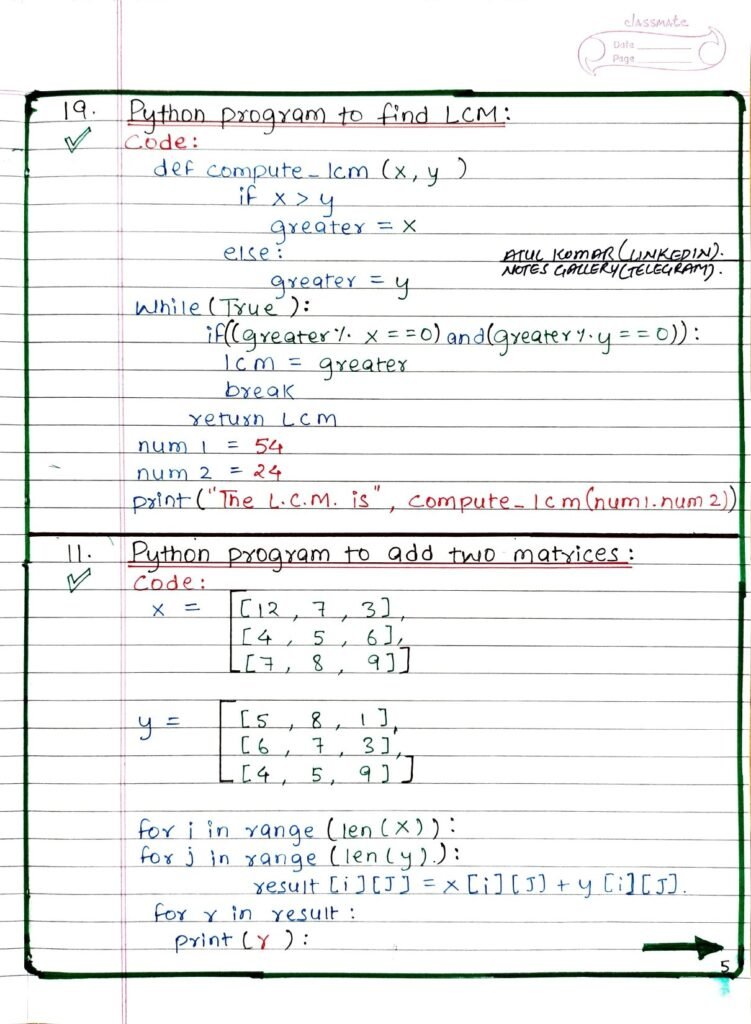 classmate
Date
Page
19. Python program to find LCM:
Code:
def compute_lcm (x, y )
if x > y
greater = x
else:
ATUL KUMAR (LINKEDIN).
NOTES GALLERY(TELEGRAM).
greater = y
While (True ):
if((greater % x ==0) and(greater % y ==0)):
lcm = greater
break
return LCM
num 1 = 54
num 2 = 24
print ("The L.C.M. is", compute_lcm(num1.num2))
11. Python program to add two matrices:
Code:
x = [[12, 7, 3],
[4, 5, 6],
[7, 8, 9]]
y = [[5, 8, 1],
[6, 7, 3],
[4, 5, 9]]
for i in range (len (X)):
for j in range (len (y).):
result [i][J] = X [i][J] + y [i][J].
for r in result :
print (r ):
5